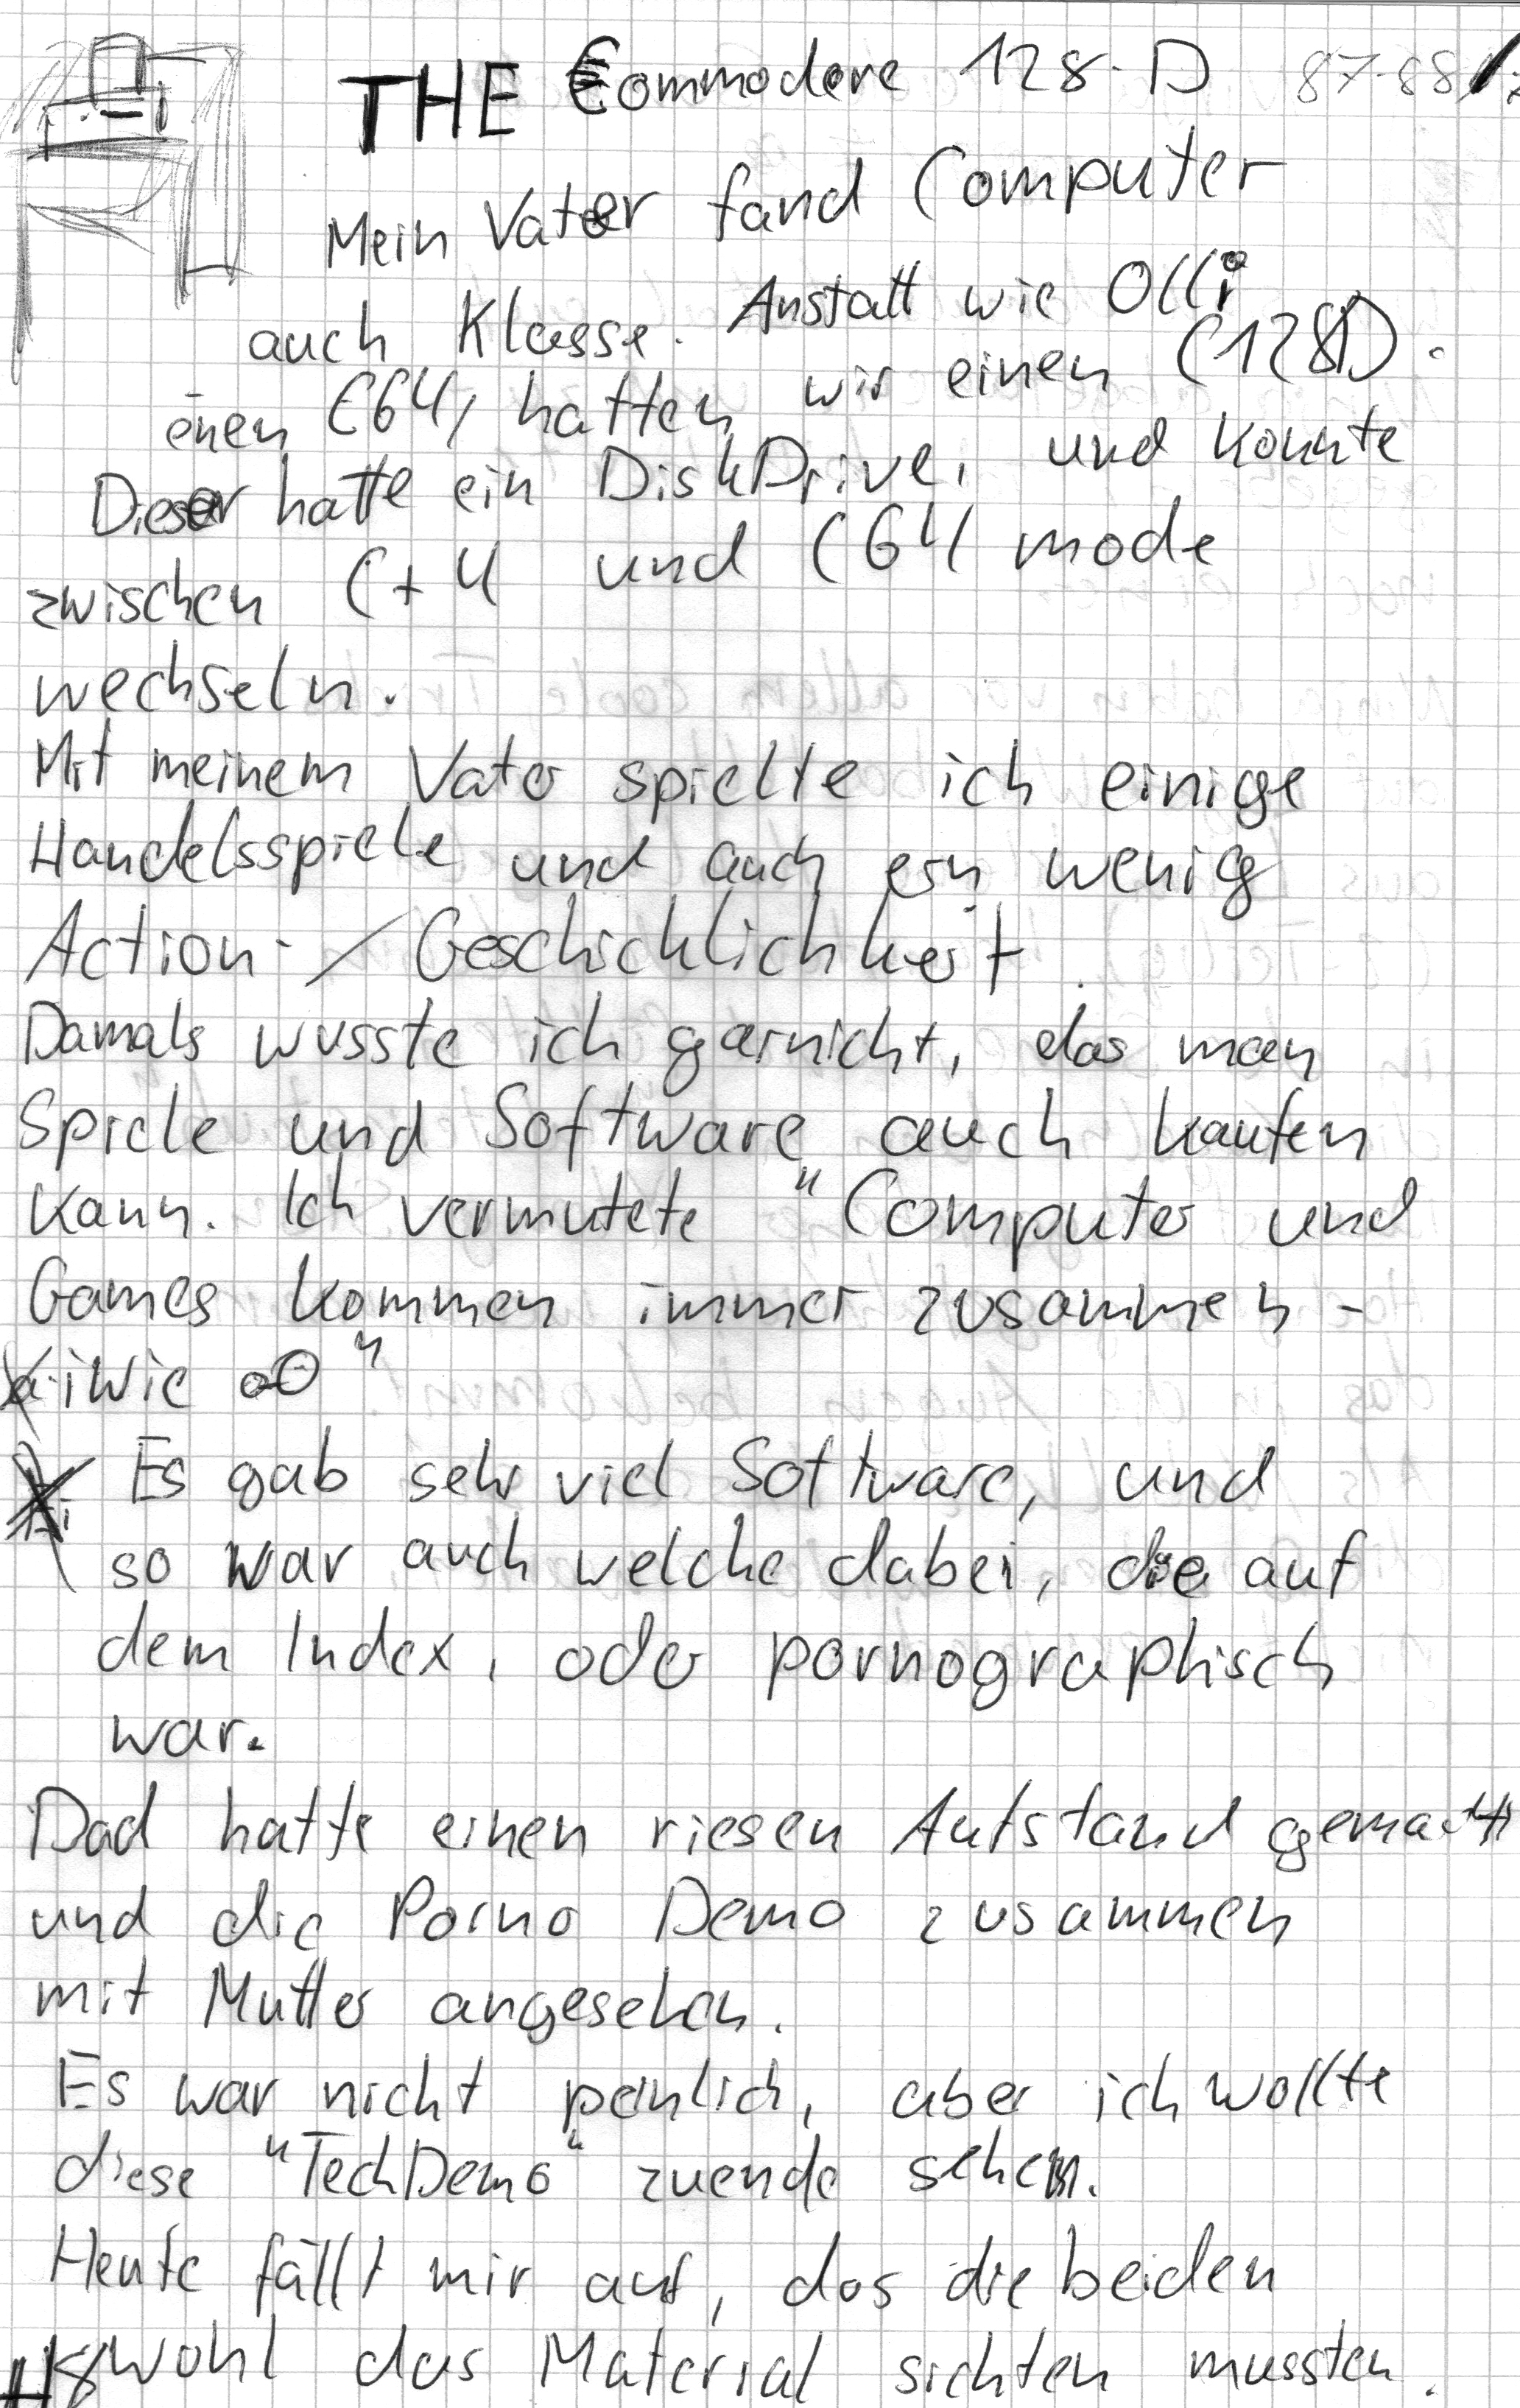 THE Commodore 128-D 87-88
Mein Vater fand Computer
auch Klasse. Anstatt wie Olli
einen C64, hatten wir einen C128D.
Dieser hatte ein DiskDrive, und konnte
zwischen C+4 und C64 mode
wechseln.
Mit meinem Vater spielte ich einige
Handelsspiele und auch ein wenig
Action-/Geschicklichkeit.
Damals wusste ich garnicht, das man
Spiele und Software auch kaufen
kann. Ich vermutete "Computer und
Games kommen immer zusammen -
iwie oO"
Es gab sehr viel Software, und
so war auch welche dabei, die auf
dem Index, oder pornographisch
war.
Dad hatte einen riesen Aufstand gemacht
und die Porno Demo zusammen
mit Mutter angesehen.
Es war nicht peinlich, aber ich wollte
diese "TechDemo" zuende sehen.
Heute fällt mir auf, das die beiden
wohl das Material sichten mussten.